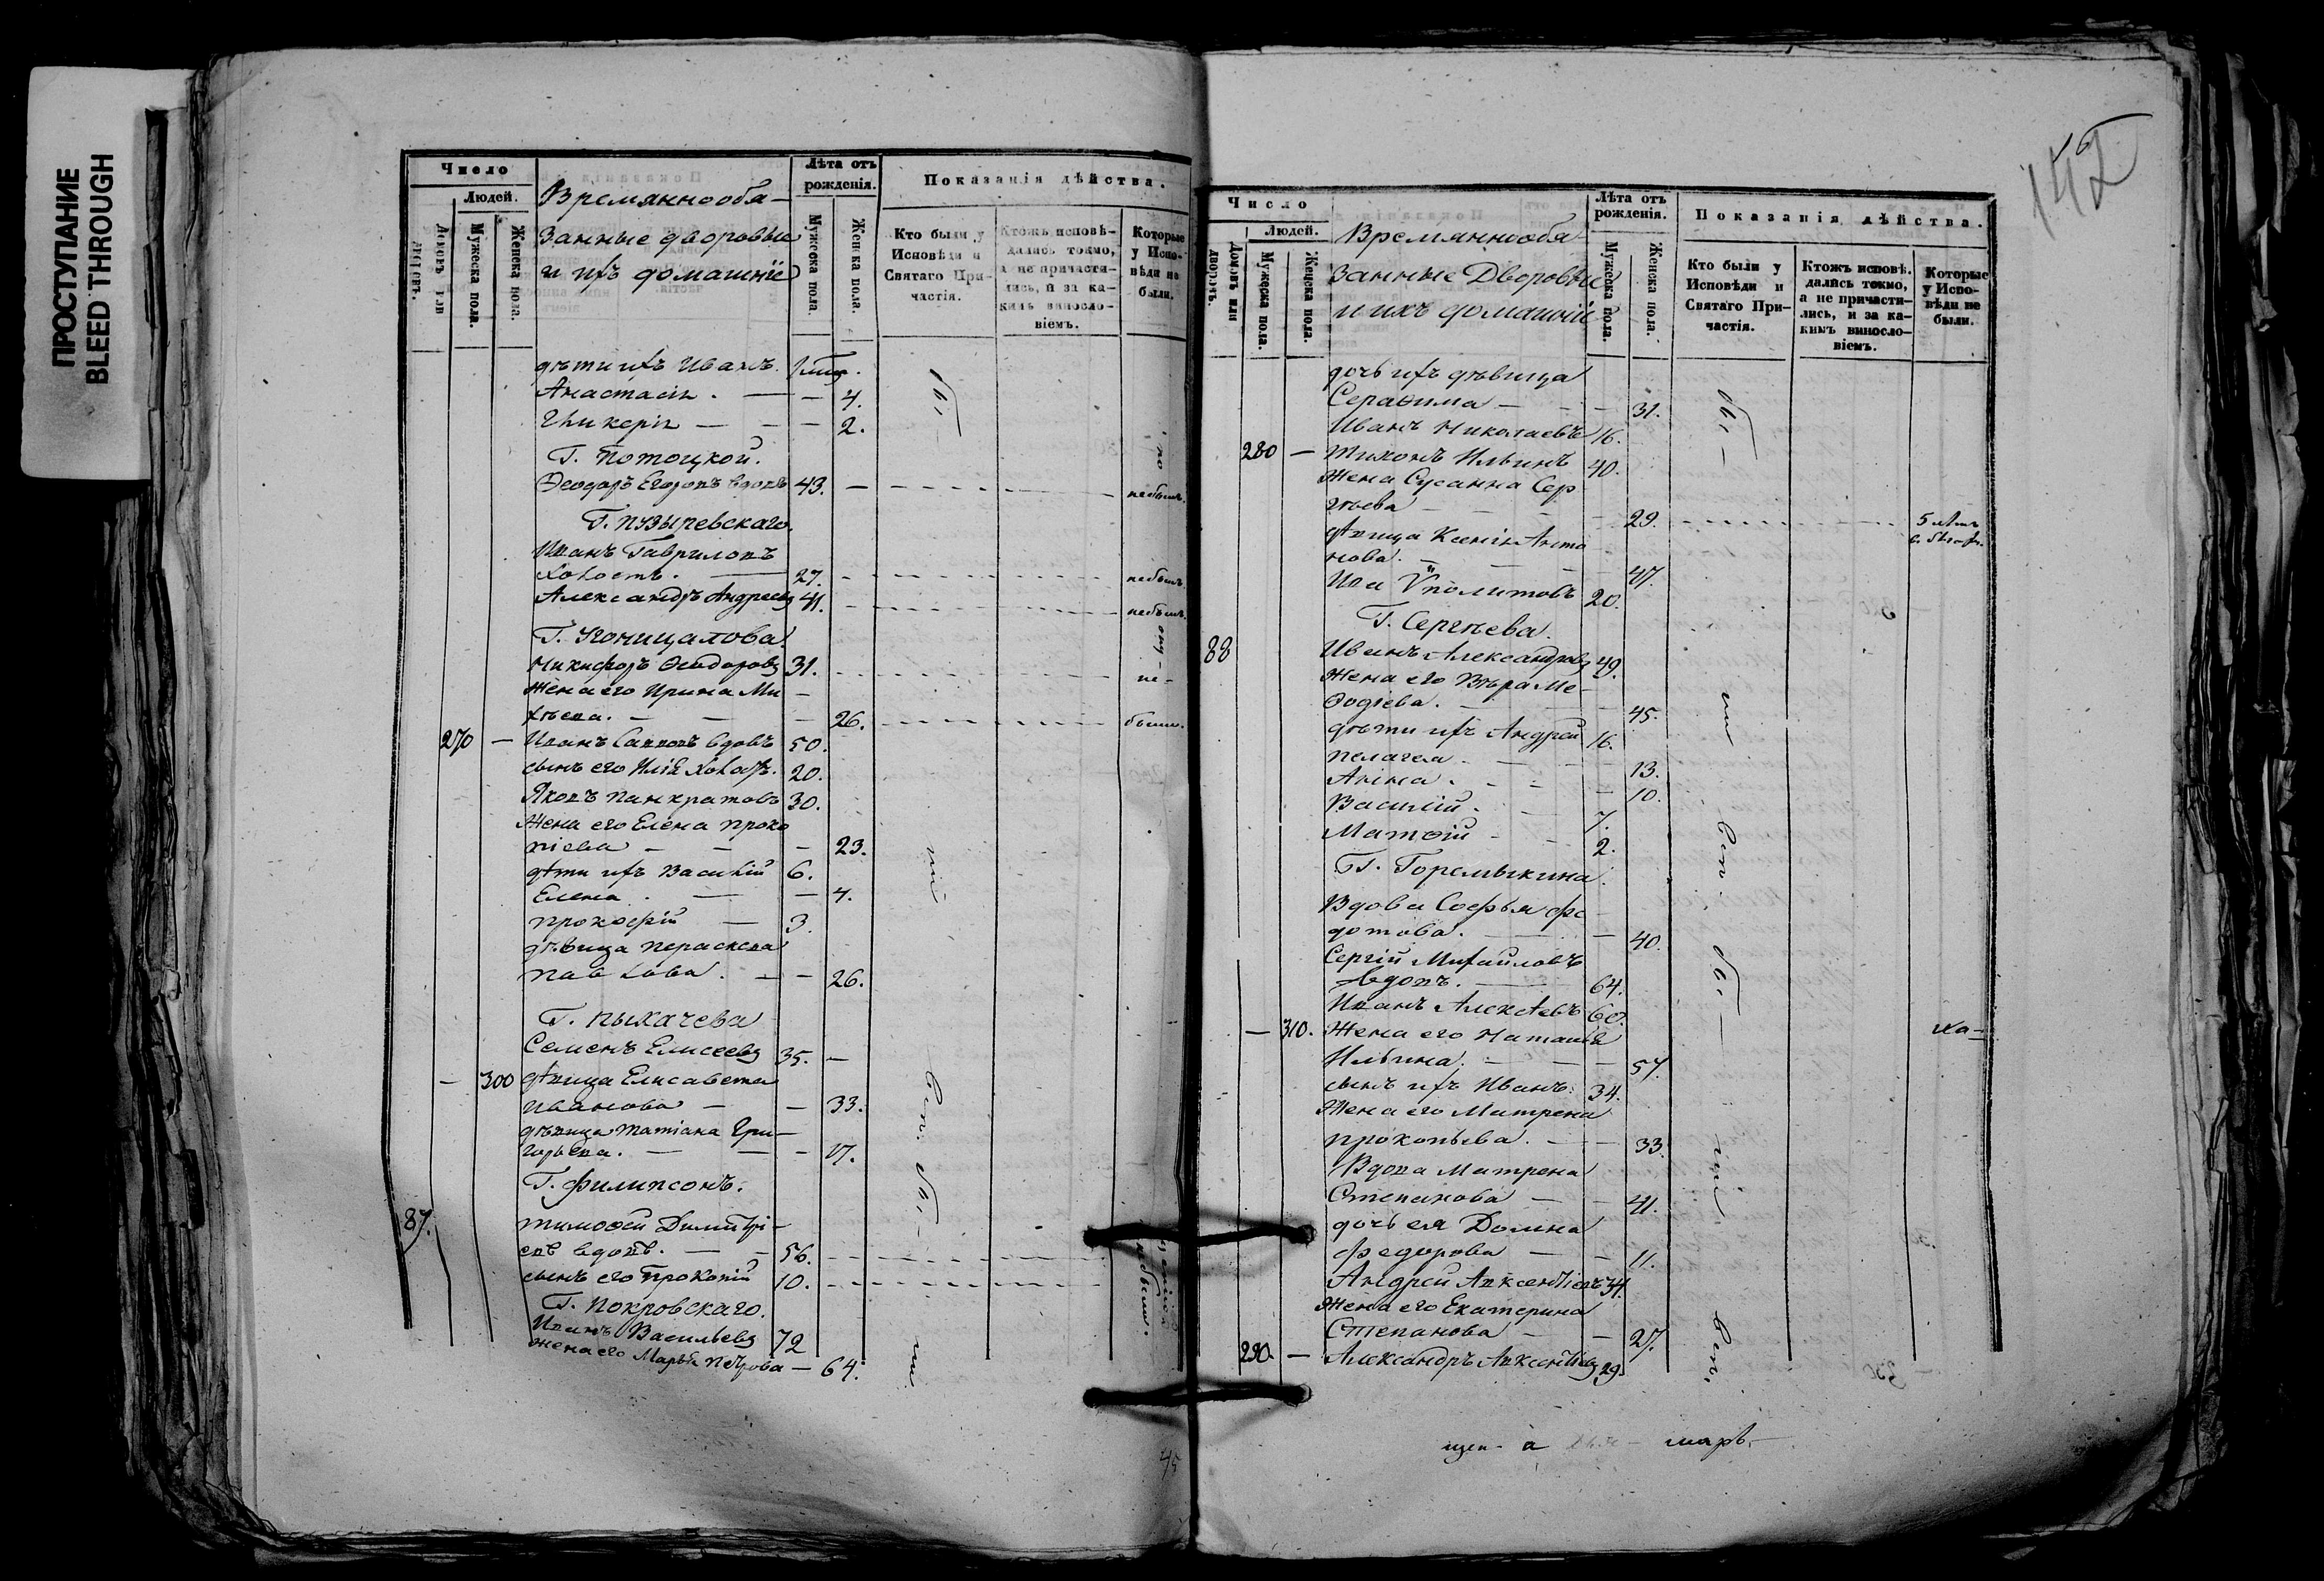 ПРОСТУПАНИЕ
BLEED THROUGH
Число
Людей.
Домовъ или дворовъ.
Мужеска пола.
Женска пола.
Времяннообя-
занные дворовые
и ихъ домашніе
Лѣта отъ рожденія.
Мужеска пола.
Женска пола.
Показанія дѣйства.
Кто были у Исповѣди и Святаго Причастія.
Ктожъ исповѣ-
дались токмо,
а не причасти-
лись, и за ка-
кимъ винosло-
віемъ.
Которые
у Испо-
вѣди не
были.
дѣти ихъ Иванъ.
Анастасія . — — 4.
Гликерія — — — 2.
Г. Потоцкой.
Ѳеодоръ Егоровъ вдовъ 43. — небылъ.
Г. Пузыревскаго.
Иванъ Гавриловъ
холостъ. — 27. небылъ
Александръ Андреевъ 41. небылъ.
Никифоръ Ѳеодоровъ 31. не-
Жена его Ирина Ми
хѣева. — — — 26. были.
270 — Иванъ Саввовъ вдовъ 50.
сынъ его Илія холос. 20.
Яковъ Панкратовъ 30.
Жена его Елена Проко
піева — — — 23.
дѣти ихъ Василій 6.
Елена . — — 4.
Прокофій — 3.
дѣвица Параскева
Павлова. — — 26.
Г. Пыхачева
Семенъ Елисеевъ 35. —
— 300 дѣвица Елисавета
Иванова — — 33.
дѣвица Татіана Гри-
горьева. — — — 17.
Г. Филипсонъ.
87. Тимоѳей Димитрі-
евъ вдовъ. — — 56.
сынъ его Прокопій 10.
Г. Покровскаго.
Иванъ Васильевъ 72
Жена его Марья Петрова — 64.
45
142
Число
Людей.
Домовъ или дворовъ.
Мужеска пола.
Женска пола.
Времяннообя-
занные Дворовые
и ихъ домашніе
Лѣта отъ рожденія.
Мужеска пола.
Женска пола.
Показанія дѣйства.
Кто были у
Исповѣди и
Святаго При-
частія.
Ктожъ исповѣ.
дались токмо,
а не причасти-
лись, и за ка-
кимъ виносло-
віемъ.
Которые
у Испо-
вѣди не
были.
дочь ихъ дѣвица
Серафима — — 31.
Иванъ Николаевъ 16.
280 — Тихонъ Ильинъ 40.
Жена Сусанна Сер
гѣева — — — 29. 5 лѣтъ
дѣвица Ксенія Анто
нова. — — — 47.
Ипполитовъ 20.
Г. Сергѣева.
88 Иванъ Александровъ 49.
Жена его Вѣра Ме-
ѳодіева. — — — 45.
дѣти ихъ Андрей 16.
Пелагея. — — 13.
Анна . - - — 10.
Василій. — 7.
Матѳій - - 2.
Г. Горемыкина.
Вдова Софья Фе
дотова. — — 40.
Сергій Михайловъ
вдовъ. — 64.
Иванъ Алексѣевъ 60.
— 310. Жена его Наталья
Ильина. — — 57.
сынъ ихъ Иванъ. 34.
Жена его Матрена
Прокопьева. — — 33.
Вдова Матрена
Степанова — — 41.
дочь ея Домна
Федорова — — 11.
Андрей Авксентіевъ 34.
Жена его Екатерина
Степанова — — 27.
290. — Александръ Авксентіевъ 29.